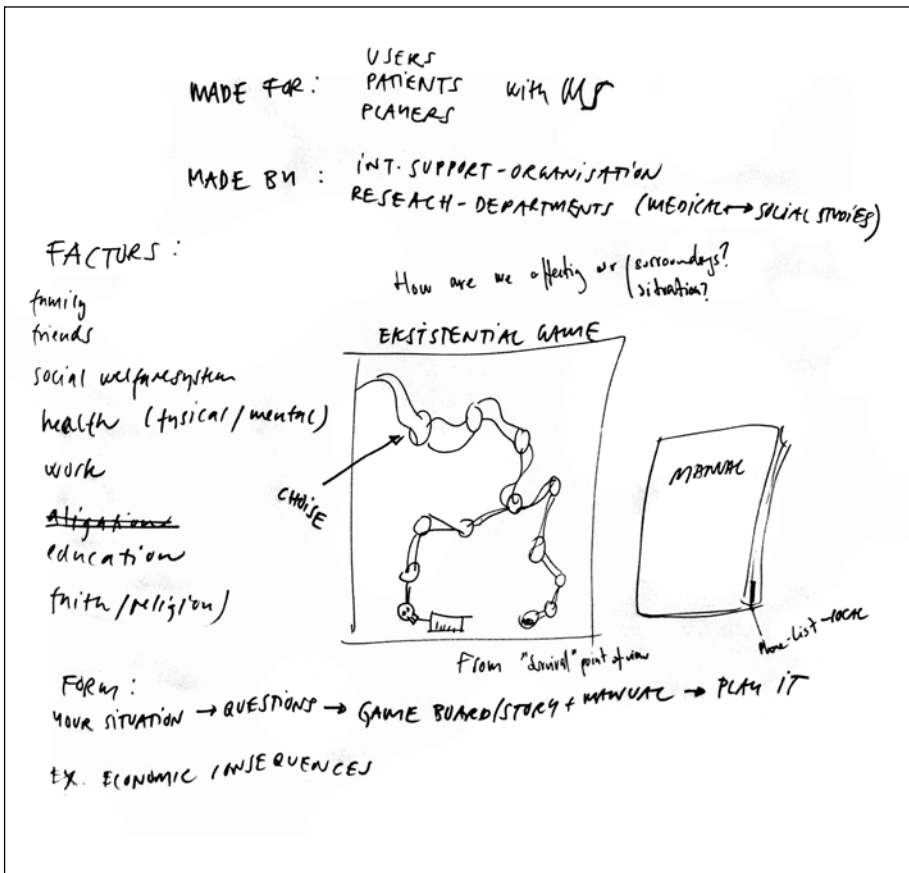 USERS
MADE FOR: PATIENTS with MS
PLAYERS
MADE BY: INT. SUPPORT-ORGANISATION
RESEACH-DEPARTMENTS (MEDICAL↔SOCIAL STUDIES)
FACTORS:
How are we affecting our / surroundings?
/ situation?
family
friends
social welfaresystem
health (fysical/mental)
work
education
faith/religion)
EKSISTENTIAL GAME
CHOISE
MANUAL
Phone-List-LOCAL
From "survival" point of view
FORM:
YOUR SITUATION → QUESTIONS → GAME BOARD/STORY + MANUAL → PLAY IT
EX. ECONOMIC CONSEQUENCES